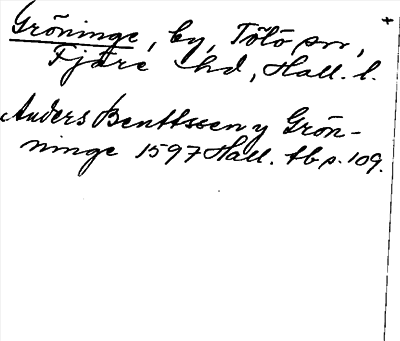 Gröninge, by, Tölö sn,
Fjäre hd, Hall. l.
Anders Benttssen y Grön-
ninge 1597 Hall. tb s. 109.